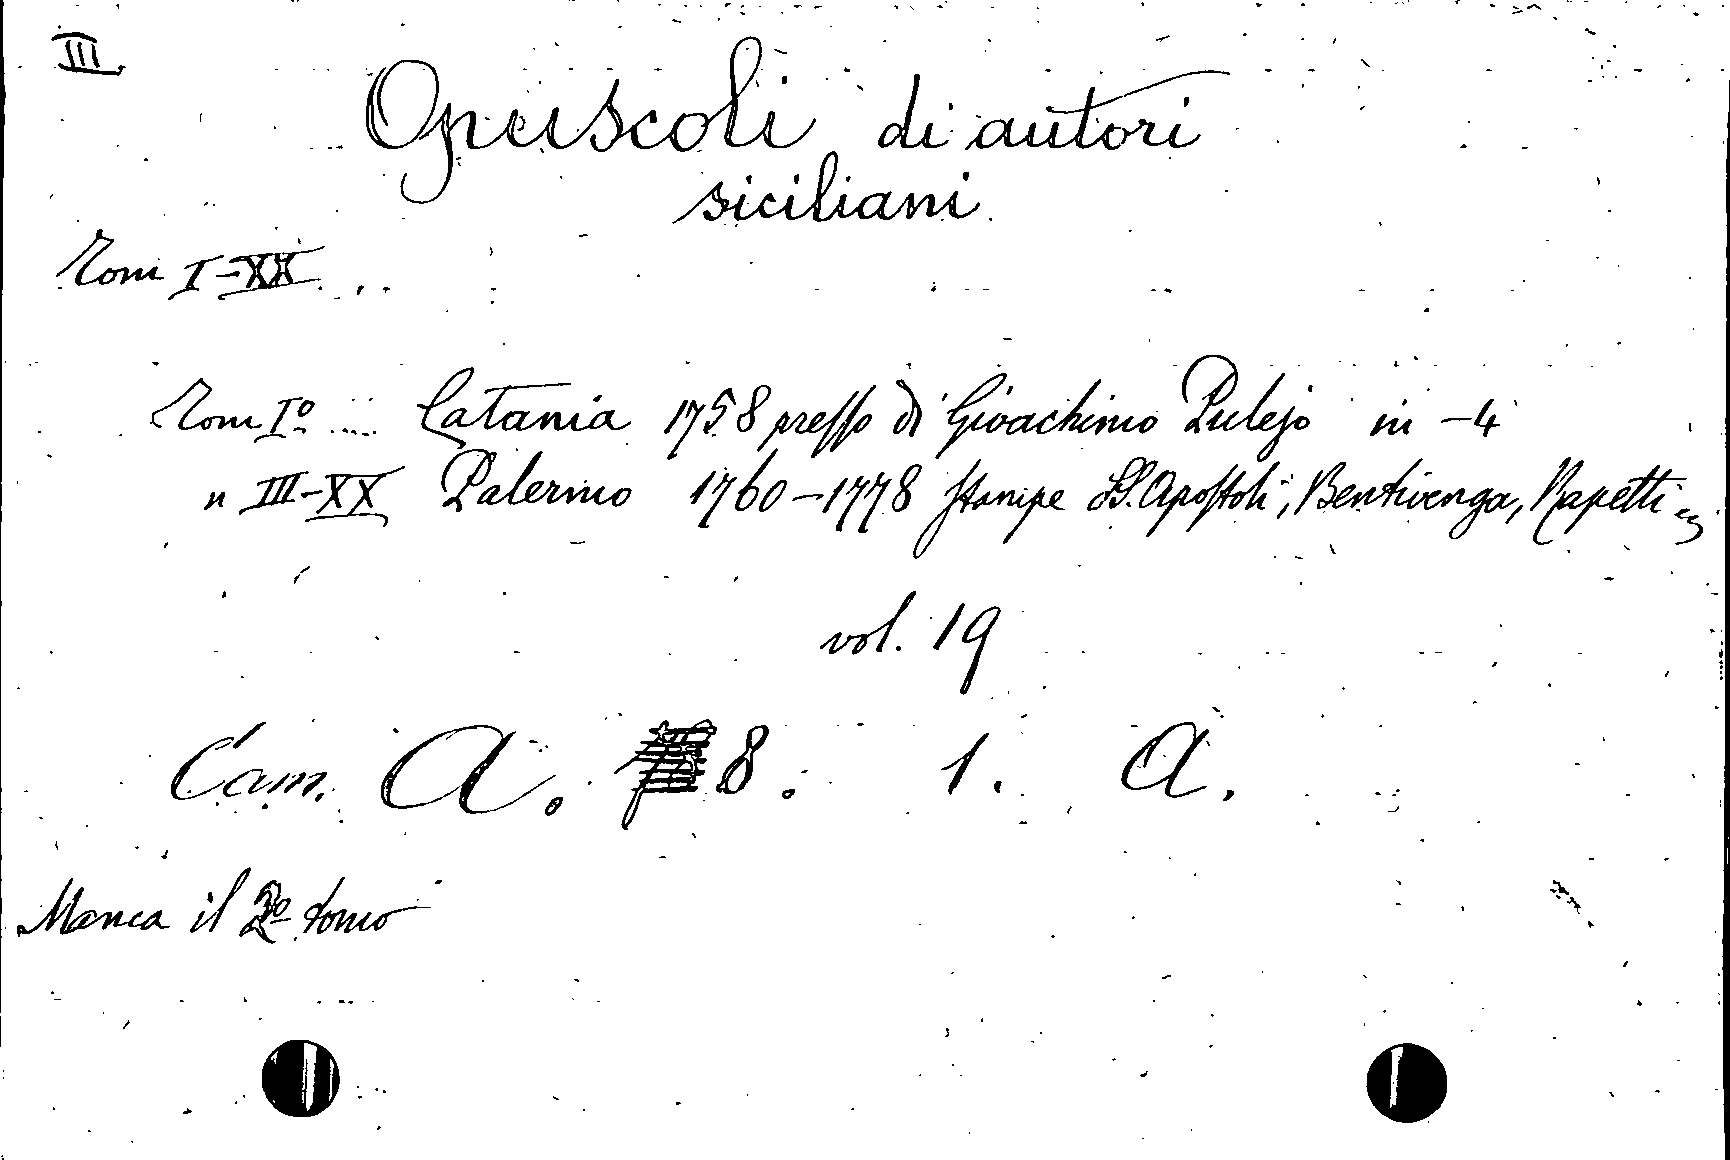 III
Opuscoli di autori
siciliani
Tomi I-XX
Tom. Iº Catania 1758 presso di Gioachimo Pulejo in-4
" III-XX Palermo 1760-1778 Stampe SS. Apostoli, Bentivenga, Rapetti
vol. 19
Cam. A. 8. 1. A.
Manca il 2º tomo